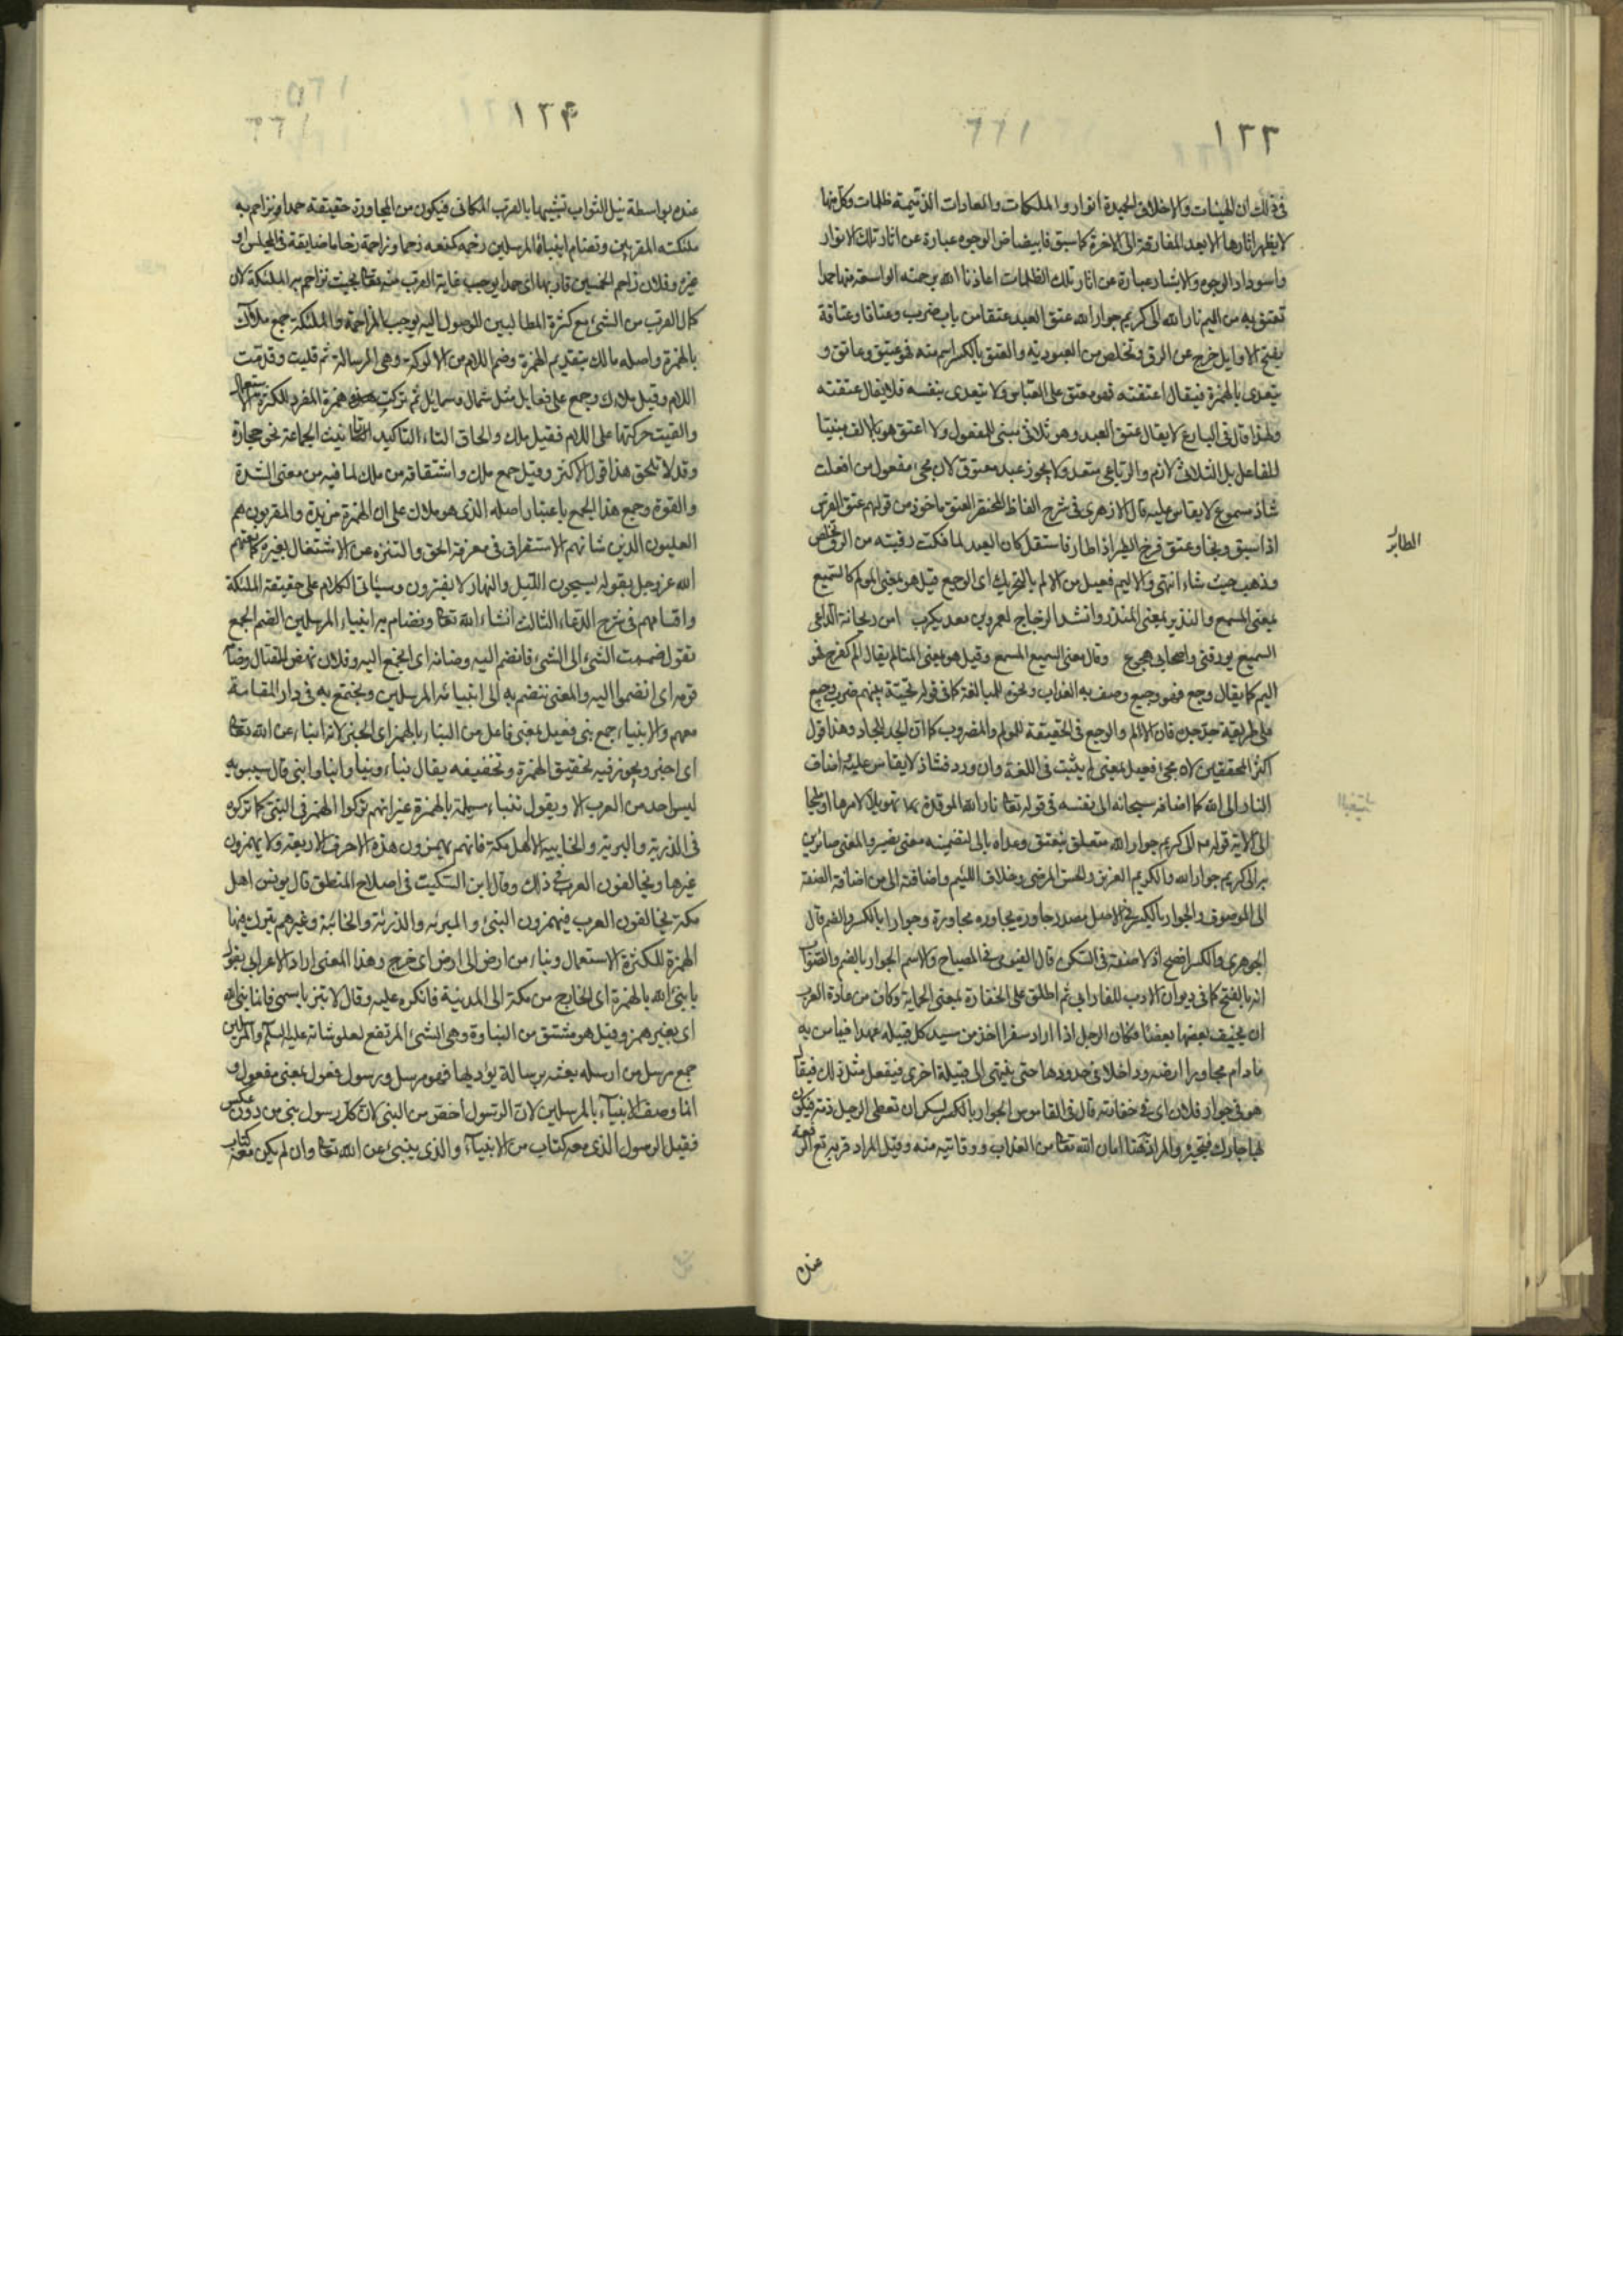 ١٣٣
في ذلك ان الهيئات والاخلاق الحميدة انوار والملكات والعادات الذميمة ظلمات وكل منها
لا يظهر اثارها الا بعد المفارقة الى الاخرة كما سبق فابيضاض الوجوه عبارة عن اثار تلك الانوار
واسوداد الوجوه والابشار عبارة عن اثار تلك الظلمات اعاذنا الله برحمته الواسعة منها حمدا
نعتق به من اليم نار الله الى كريم جوار الله عتق العبد عتقا من باب ضرب وعتاقا وعتاقة
بفتح الاوايل خرج عن الرق وتخلص من العبودية والعتق بالكسر اسم منه فهو عتيق وعاتق و
يتعدى بالهمزة فيقال اعتقته فهو معتق على القياس ولا يتعدى بنفسه فلا يقال عتقته
ولهذا قال في البارع لا يقال عتق العبد وهو ثلاثي مبني للمفعول ولا اعتق هو بالالف مبنيا
للفاعل بل الثلاثي لازم والرباعي متعد ولا يجوز عبد معتوق لان مجئ مفعول من افعلت
شاذ مسموع لا يقاس عليه قال الازهري في شرح الفاظ المختصر العتق ماخوذ من قولهم عتق الفرس
اذا سبق ونجا وعتق فرخ الطير اذا طار فاستقل كان العبد لما فكت رقبته من الرق تخلص
وذهب حيث شاء انتهى والاليم فعيل من الالم بالتحريك اى الوجيع قيل هو بمعنى المولم كالسميع
بمعنى المسمع والنذير بمعنى المنذر وانشد الزجاج لعمرو بن معد يكرب امن ريحانة الداعي
السميع يورقني واصحابي هجوع وقال معنى السميع المسمع وقيل هو بمعنى المتالم يقال الم كفرح فهو
اليم كما يقال وجع فهو وجيع وصف به العذاب ونحوه للمبالغة كما في قوله تحية بينهم ضرب وجيع
على طريقة جد جده فان الالم والوجيع في الحقيقة للمولم والمضروب كما ان الجد للجاد وهذا قول
اكثر المحققين لان مجئ فعيل بمعنى لم يثبت في اللغة وان ورد فشاذ لا يقاس عليه اضاف
النار الى الله كما اضافه سبحانه الى نفسه في قوله تعالى نار الله الموقدة تهويلا لامرها
قوله الى كريم جوار الله متعلق بنعتق وعداه بالى لتضمينه معنى نصير والمعنى صائرين
به الى كريم جوار الله والكريم العزيز والحسن المرضي وخلاف اللئيم واضافته الى من اضافة الصفة
الى الموصوف والجوار بالكسر في الاصل مصدر جاوره يجاوره مجاورة وجوارا بالكسر والضم قال
الجوهري والكسر افصح قال الفيومي في المصباح والاسم الجوار بالضم والصواب
انه بالفتح كما في ديوان الادب للفارابي ثم اطلق على الخفارة بمعنى الحماية وكان من عادة العرب
ان يخيف بعضها بعضا فكان الرجل اذا اراد سفرا اخذ من سيد كل قبيلة عهدا فيامن به
مادام مجاورا ارضه وداخلا في حدودها حتى ينتهي الى قبيلة اخرى فيفعل مثل ذلك فيقال
هو في جوار فلان اى في خفارته قال في القاموس الجوار بالكسر ان تعطى الرجل ذمة فيكون
بها جارك فتجيره والمراد هنا امان الله تعالى من العذاب ووقايته منه وقيل المراد قربه تع
الطاير
عنده
١٣٤
عنده بواسطة نيل الثواب تشبيها بالقرب المكاني فيكون من المجاورة حقيقة حمدا نزاحم به
ملئكته المقربين ونضام انبياءه المرسلين زحمه كمنعه زحما وزاحمه زحاما ضايقه في المجلس او
غيره وفلان زاحم الخمسين قاربها اى حمدا يوجب غاية القرب منه تعالى بحيث نزاحم به الملئكة لان
كمال القرب من الشئ مع كثرة الطالبين للوصول اليه يوجب المزاحمة والملئكة جمع ملأك
بالهمزة واصله مالك بتقديم الهمزة وضم اللام من الالوكة وهي الرسالة ثم قلبت وقدمت
اللام وقيل ملاءك وجمع على فعايل مثل شمال وشمايل ثم تركت همزة المفرد لكثرة الاستعمال
والقيت حركتها على اللام فقيل ملك والحاق التاء لتاكيد تانيث الجماعة نحو حجارة
وقد لا تلحق هذا قول الاكثر وقيل جمع ملك واشتقاقه من ملك لما فيه من معنى الشدة
والقوة وجمع هذا الجمع باعتبار اصله الذى هو ملاك على ان الهمزة مزيدة والمقربون هم
العليون الذين شانهم الاستغراق في معرفة الحق والتنزه عن الاشتغال بغيره كما نعتهم
الله عز وجل بقوله يسبحون الليل والنهار لا يفترون وسياتي الكلام على حقيقة الملئكة
واقسامهم في شرح الدعاء الثالث انشاء الله تعالى ونضام به انبياءه المرسلين الضم الجمع
تقول ضممت الشئ الى الشئ فانضم اليه وضامه اى اجتمع اليه وفلان نهض للقتال وضام
قومه اى انضموا اليه والمعنى ننضم به الى انبيائه المرسلين ونجتمع به في دار المقامة
معهم والانبياء جمع نبى فعيل بمعنى فاعل من النبأ بالهمز اى الخبر لانه انباء عن الله تعالى
اى اخبر ويجوز فيه تحقيق الهمزة وتخفيفه يقال نبأ ونبأ وانبأ وانبي قال سيبويه
ليس احد من العرب الا ويقول تنباء مسيلمة بالهمزة غير انهم تركوا الهمز في النبي كما تركوه
في الذرية والبرية والخابية الا اهل مكة فانهم يهمزون هذه الاحرف الاربعة ولا يهمزون
غيرها ويخالفون العرب في ذلك وقال ابن السكيت في اصلاح المنطق قال يونس اهل
مكة يخالفون العرب فيهمزون النبئ والبريئة والذريئة والخابئة وغيرهم يترك فيها
الهمزة لكثرة الاستعمال ونباء من ارض الى ارض اى خرج وهذا المعنى اراد الاعرابي بقوله
يا نبئ الله بالهمزة اى الخارج من مكة الى المدينة فانكره عليه وقال لا تنبز باسمي فانما انا نبي الله
اى بغير همز وقيل هو مشتق من النباوة وهي الشئ المرتفع لعلو شانه عليه السلام والمرسلين
جمع مرسل من ارسله بعثه برسالة يؤديها فهو مرسل ورسول فعول بمعنى مفعول و
انما وصف الانبياء بالمرسلين لان الرسول اخص من النبي لان كل رسول نبي من دون عكس
فقيل الرسول الذى معه كتاب من الانبياء والذى ينبئ عن الله تعالى وان لم يكن معه كتاب